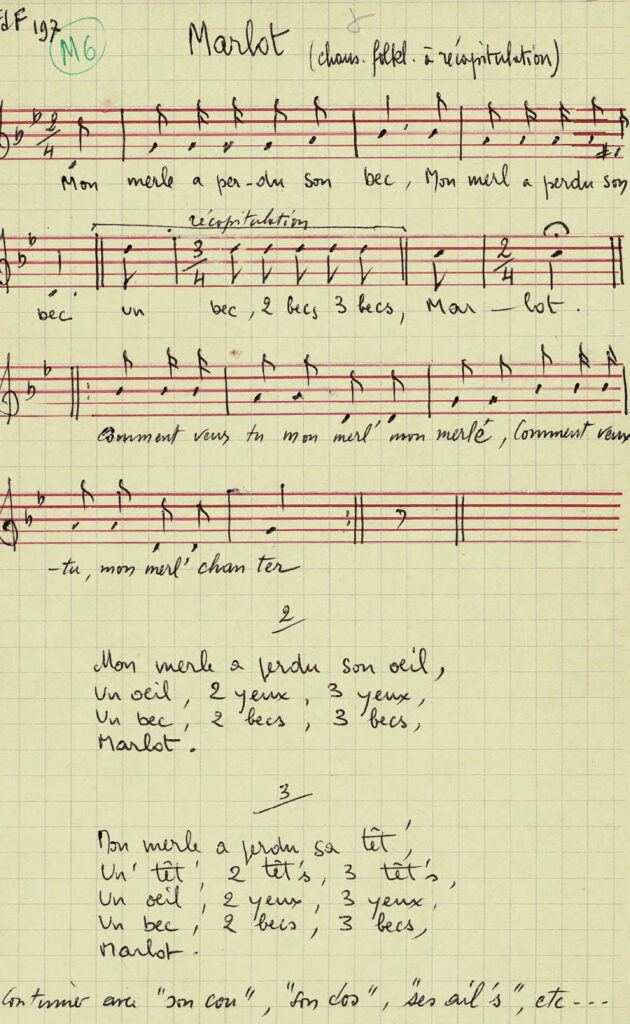 dF 197
M6
Marlot (chans. folkl. à récapitulation)
2/4
Mon merle a per-du son bec, Mon merl a perdu son
récapitulation
3/4 2/4
bec un bec, 2 becs 3 becs, Mar - lot.
Comment veux tu mon merl' mon merle, Comment veux
-tu, mon merl' chan ter
2
Mon merle a perdu son oeil,
Un oeil, 2 yeux, 3 yeux,
Un bec, 2 becs, 3 becs,
Marlot.
3
Mon merle a perdu sa têt',
Un' têt', 2 têt's, 3 têt's,
Un oeil, 2 yeux, 3 yeux,
Un bec, 2 becs, 3 becs,
Marlot.
Continuer avec "son cou", "son dos", "ses ail's", etc---